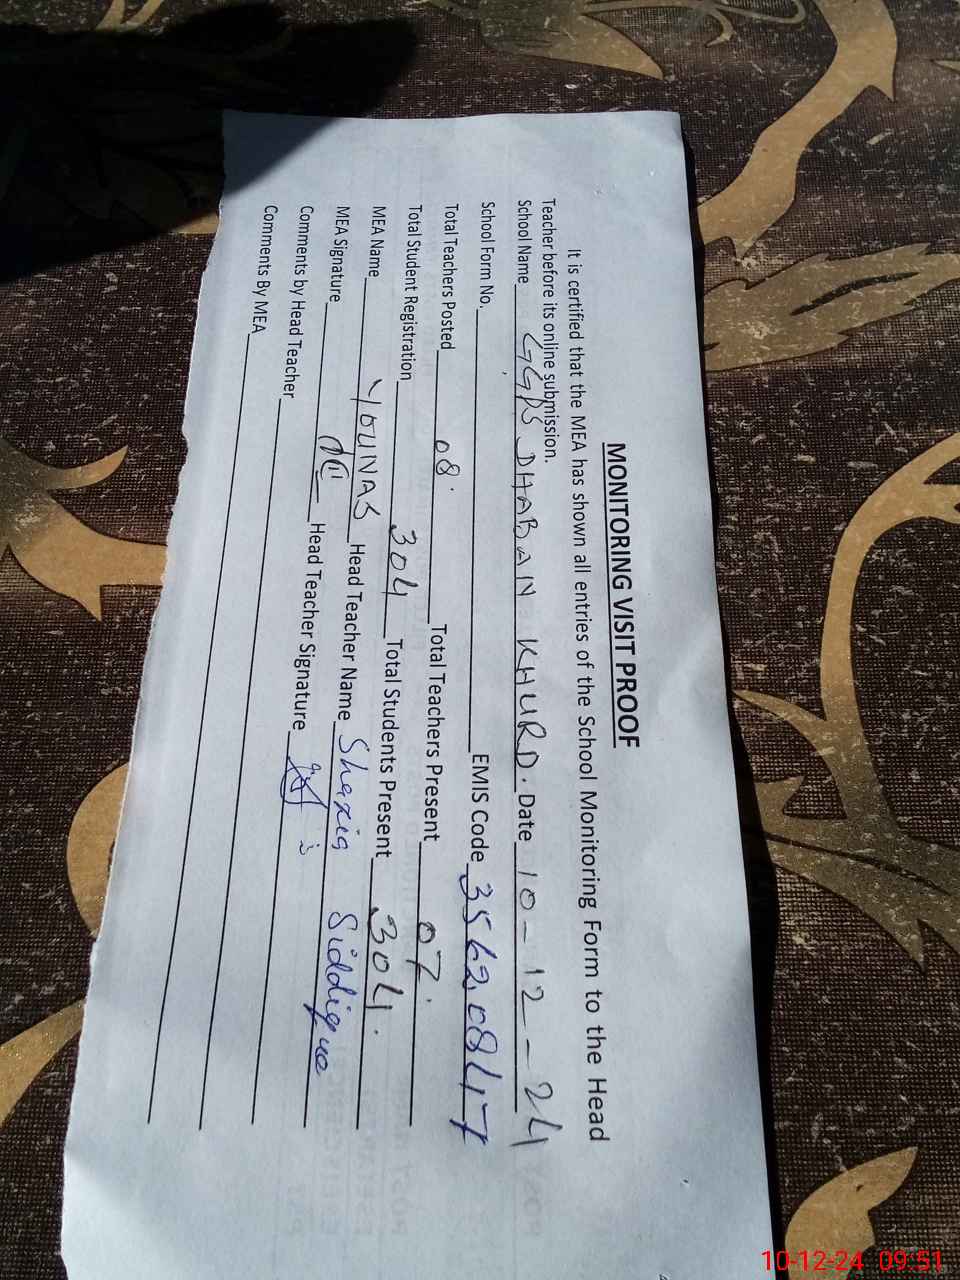 MONITORING VISIT PROOF
It is certified that the MEA has shown all entries of the School Monitoring Form to the Head
Teacher before its online submission.
School Name GGPS DHABAN KHURD. Date 10-12-24
School Form No. EMIS Code 35620847
Total Teachers Posted 08. Total Teachers Present 07.
Total Student Registration 304 Total Students Present 304.
MEA Name YOUNAS Head Teacher Name Shazia Siddique
MEA Signature Head Teacher Signature
Comments by Head Teacher
Comments By MEA
10-12-24 09:51